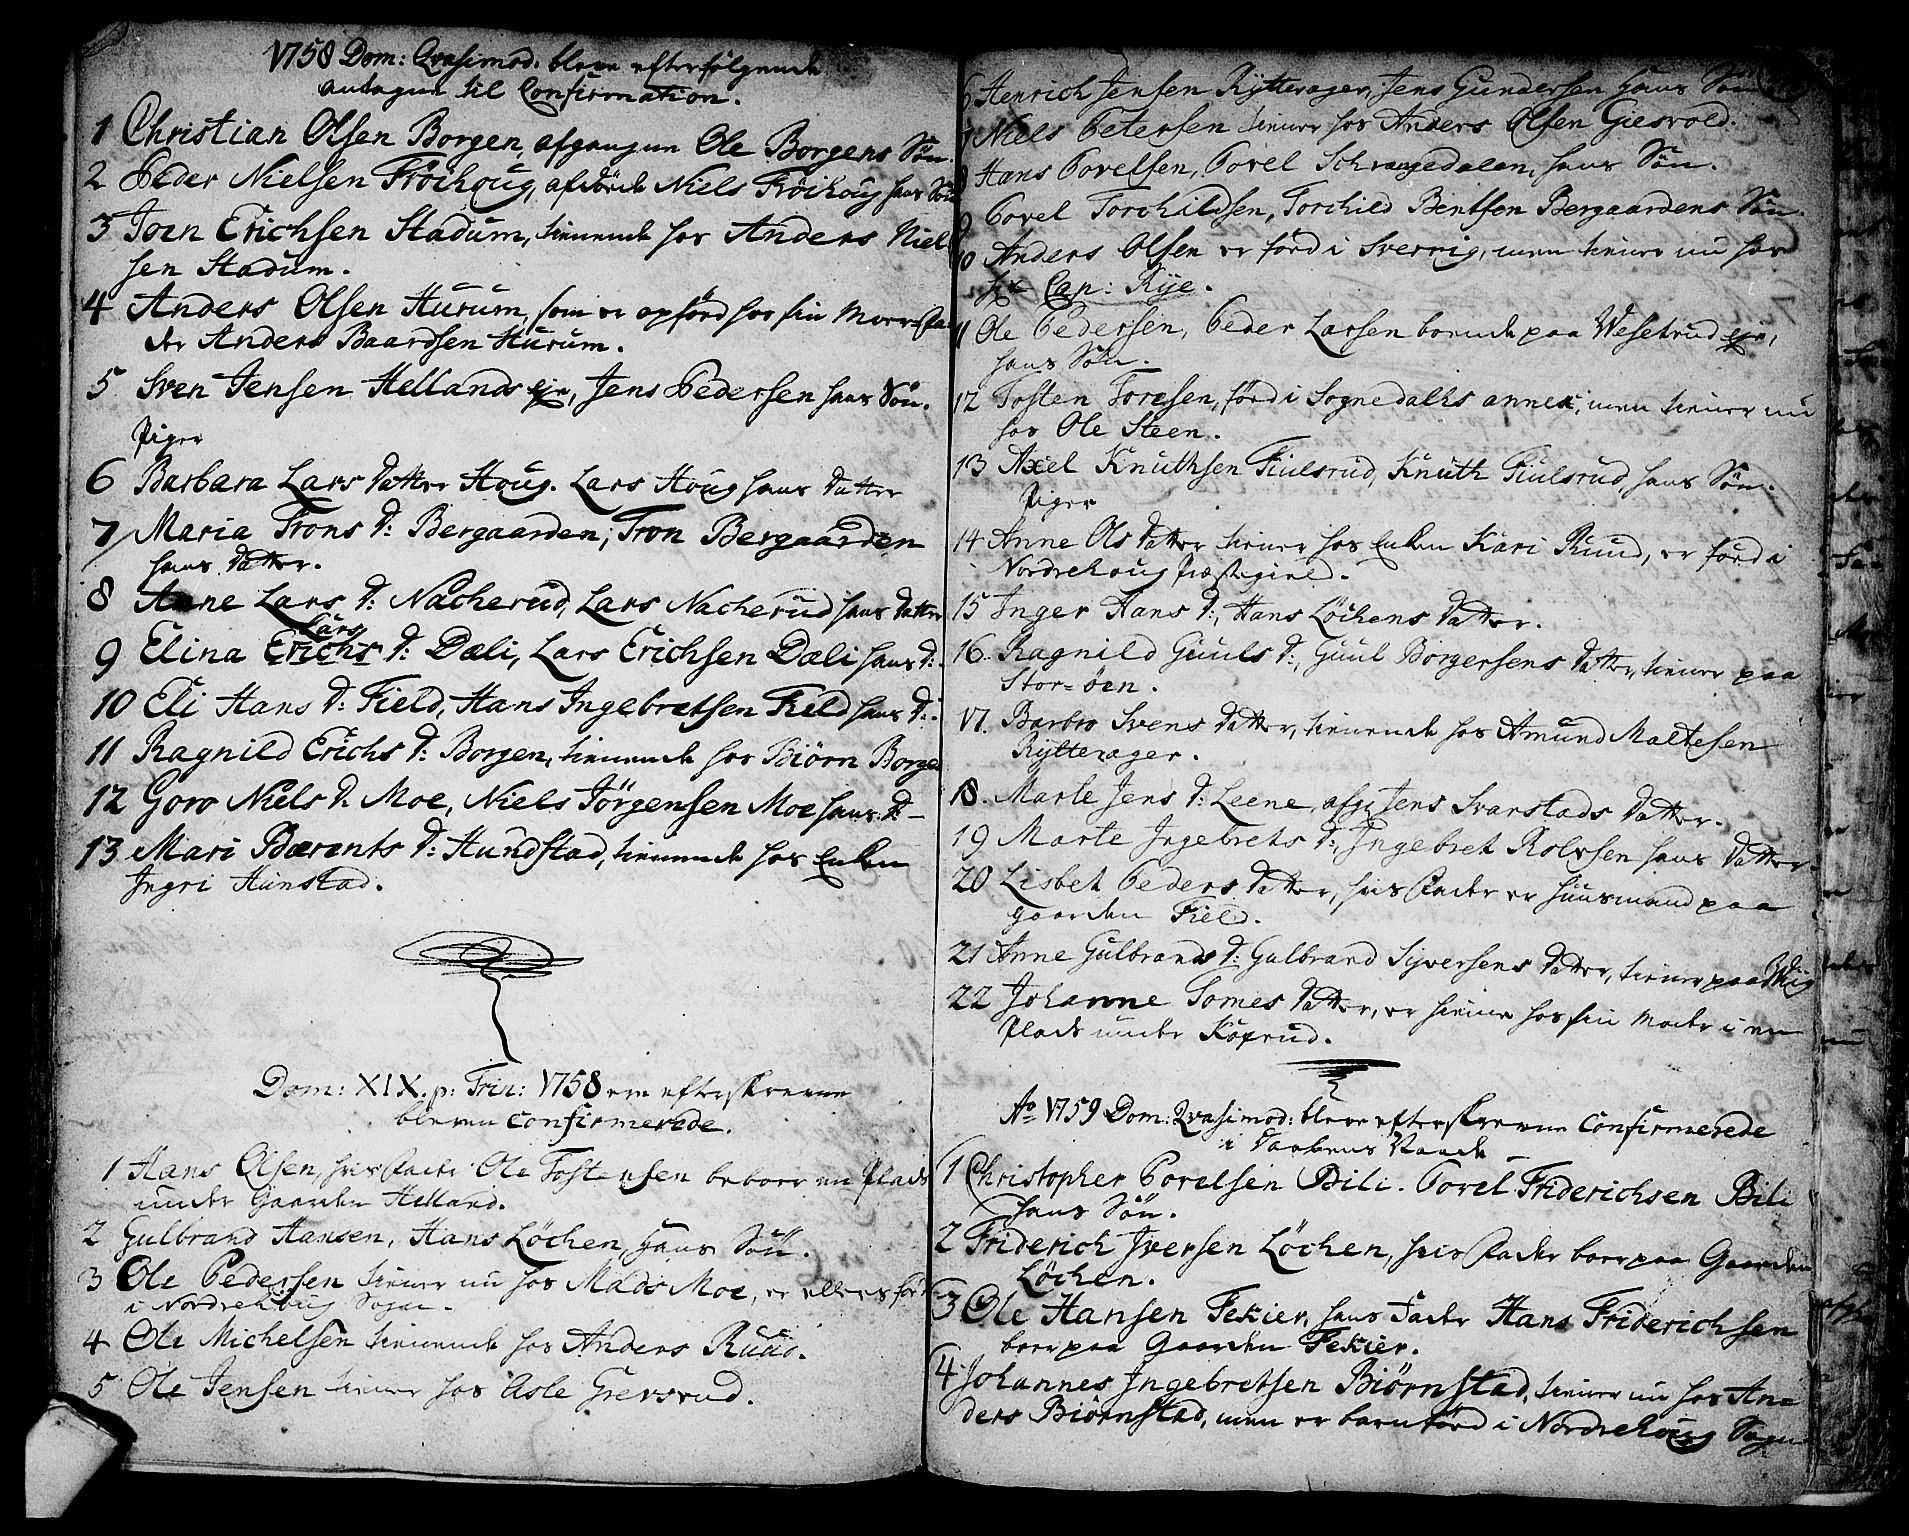 1758 Dom: Qvasimod. bleve efterfølgende
antagne til Confirmation.
1 Christian Olsen Borgen, afgangne Ole Borgens Sön.
2 Peder Nielsen Fröihoug, afdöde Niels Fröihoug hans Sön
3 Joen Erichsen Stadum, tienende hos Anders Niel
sen Stadum.
4 Anders Olsen Hurum, som er opfód hos sin Morfa
der Anders Baardsen Hurum.
5 Sven Jensen Hellands eje, Jens Pedersen hans Sön.
Piger
6 Barbara Lars Datter Houg. Lars Houg hans Datter
7 Maria Trons D: Bergaarden, Tron Bergaarden
hans Datter.
8 Anne Lars D: Nacherud, Lars Nacherud hans Datter
Lars
9 Elina Erichs D: Dæli, Lars Erichsen Dæli hans D:
10 Eli Hans D: Field, Hans Ingebretsen Field hans D:
11 Ragnild Erichs D: Borgen, tienende hos Biörn Borgen
12 Goro Niels D. Moe, Niels Jörgensen Moe hans D:
13 Mari Bærents D: Hundstad, tienende hos Enken
Ingri Hunstad.
Dom: XIX. p: Trin: 1758 ere efterskrevne
bleven confirmerede.
1 Hans Olsen, hvis Fader Ole Tostensen beboer en Plads
under Gaarden Helland.
2 Gulbrand Hansen, Hans Löchen hans Sön.
3 Ole Pedersen tiener nu hos Mads Moe, er ellers föd
i Nordrehoug Sogn.
4 Ole Michelsen tienende hos Anders Ruud.
5 Ole Jensen tiener hos Asle Grevsrud.
6 Henrich Jensen Rytterager, Jens Gundersen hans Sön
7 Niels Petersen tiener hos Anders Olsen Giesvold.
8 Hans Povelsen, Povel Schragedalen, hans Sön.
9 Povel Torchildsen, Torchild Bentsen Bergaardens Sön.
10 Anders Olsen er född i Sverrig, men tiener nu hos
Hr Cap: Rye.
11 Ole Pedersen, Peder Larsen boende paa Wesetrud eje,
hans Sön.
12 Tosten Toresen, född i Sognedalls annex, men tiener nu
hos Ole Steen.
13 Axel Knuthsen Fiulsrud, Knuth Fiulsrud, hans Sön.
Piger
14 Anne Ols Datter tiener hos Enken Kari Ruud, er född i
Nordrehoug Præstegield.
15 Inger Hans D:, Hans Löchens Datter.
16. Ragnild Guuls D:, Guul Borgersens Datter, tiener paa
Stor-öen.
17. Barbro Svens Datter, tienende hos Amund Maltesen
Rytterager.
18. Marte Jens D: Leene, afg: Jens Svarstads Datter.
19 Marte Ingebrets D: Ingebret Rolvsen hans Datter.
20 Lisbet Peders Datter, hvis Fader er Huusmand paa
gaarden Field.
21 Anne Gulbrands D: Gulbrand Syversens Datter, tiener paa
22 Johanne Tomes Datter, er hiemme hos sin Moder i en
Plads under Koprud.
Ao 1759 Dom: Qvasimod: bleve efterskrevne confirmerede
i Daabens Naade
1 Christopher Povelsen Bili. Povel Friderichsen Bili
hans Sön.
2 Friderich Iversen Löchen, hvis Fader boer paa Gaarden
Löchen.
3 Ole Hansen Fekier, hans Fader Hans Friderichsen
boer paa Gaarden Fekier.
4 Johannes Ingebretsen Biörnstad, tiener nu hos An=
ders Biörnstad, men er barnföd i Nordrehoug Sogn